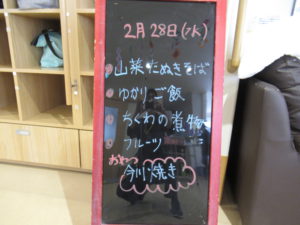 2月28日(水)
山菜たぬきそば
ゆかりご飯
ちくわの煮物
フルーツ
おやつ
今川焼き